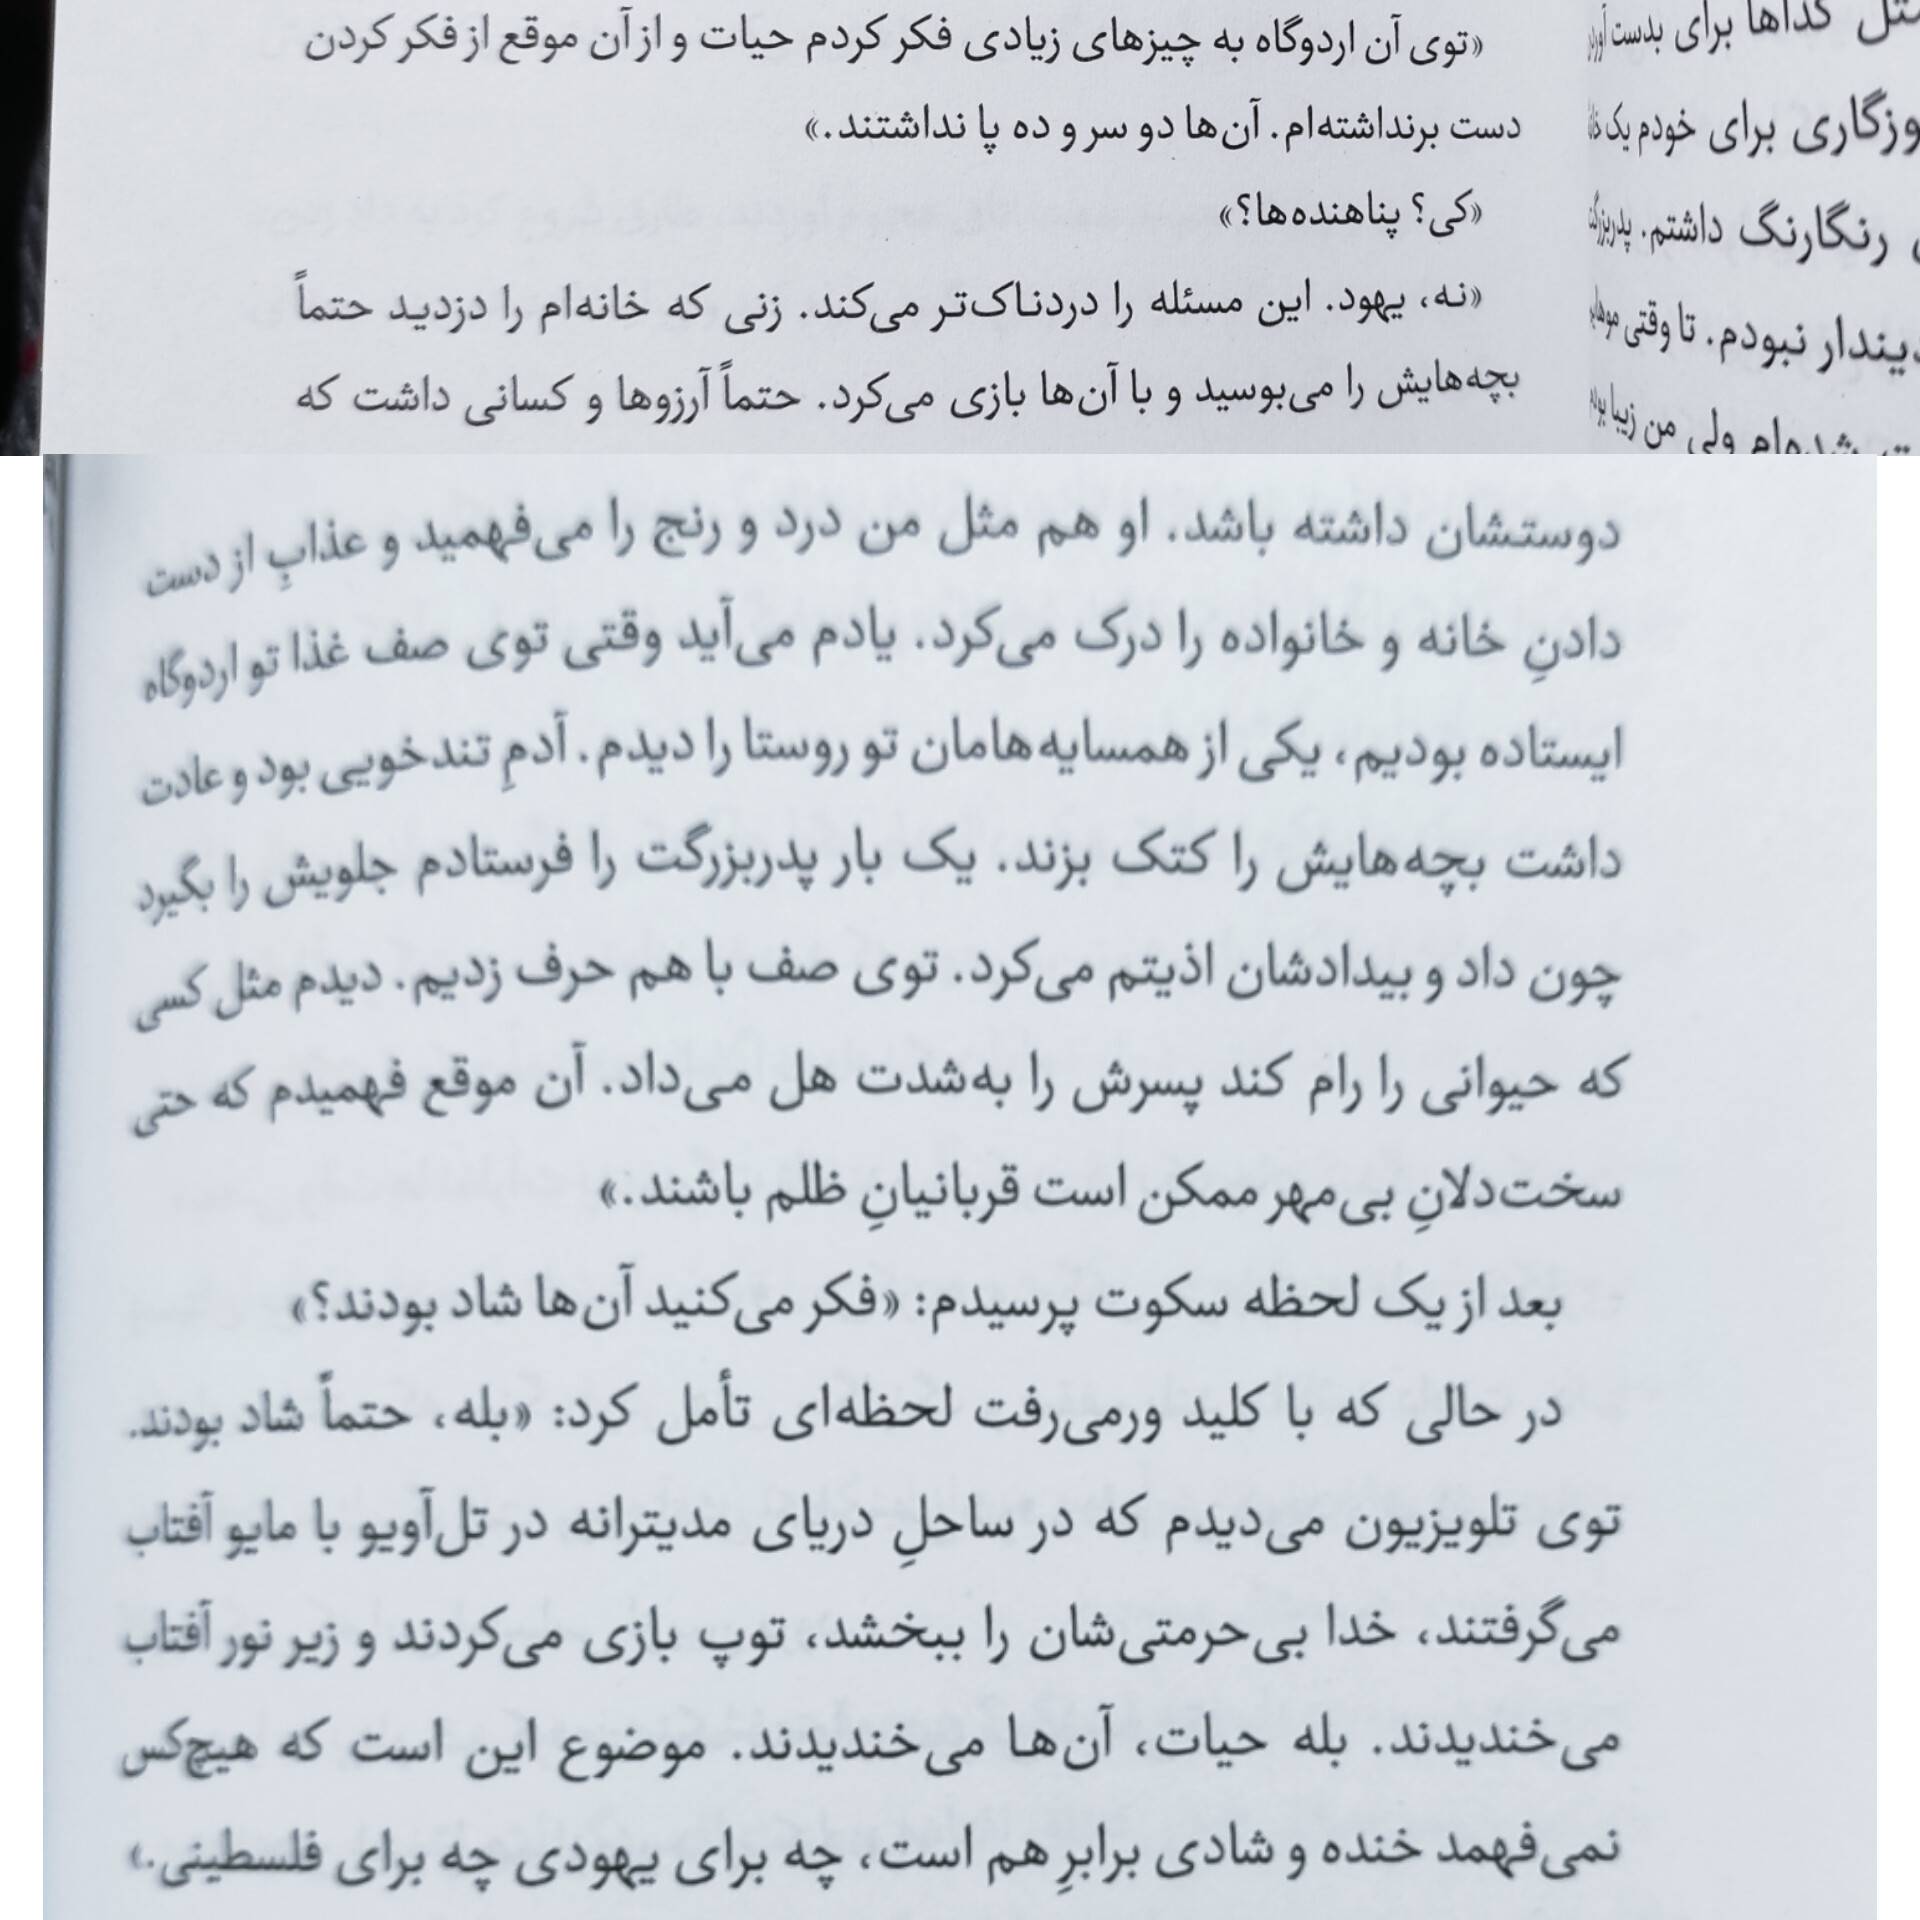 «توی آن اردوگاه به چیزهای زیادی فکر کردم حیات و از آن موقع از فکر کردن
دست برنداشته‌ام. آن‌ها دو سر و ده پا نداشتند.»
«کی؟ پناهنده‌ها؟»
«نه، یهود. این مسئله را دردناک‌تر می‌کند. زنی که خانه‌ام را دزدید حتماً
بچه‌هایش را می‌بوسید و با آن‌ها بازی می‌کرد. حتماً آرزوها و کسانی داشت که
دوستشان داشته باشد. او هم مثل من درد و رنج را می‌فهمید و عذابِ از دست
دادنِ خانه و خانواده را درک می‌کرد. یادم می‌آید وقتی توی صف غذا تو اردوگاه
ایستاده بودیم، یکی از همسایه‌هامان تو روستا را دیدم. آدمِ تندخویی بود و عادت
داشت بچه‌هایش را کتک بزند. یک بار پدربزرگت را فرستادم جلویش را بگیرد
چون داد و بیدادشان اذیتم می‌کرد. توی صف با هم حرف زدیم. دیدم مثل کسی
که حیوانی را رام کند پسرش را به‌شدت هل می‌داد. آن موقع فهمیدم که حتی
سخت‌دلانِ بی‌مهر ممکن است قربانیانِ ظلم باشند.»
بعد از یک لحظه سکوت پرسیدم: «فکر می‌کنید آن‌ها شاد بودند؟»
در حالی که با کلید ورمی‌رفت لحظه‌ای تأمل کرد: «بله، حتماً شاد بودند.
توی تلویزیون می‌دیدم که در ساحلِ دریای مدیترانه در تل‌آویو با مایو آفتاب
می‌گرفتند، خدا بی‌حرمتی‌شان را ببخشد، توپ بازی می‌کردند و زیر نور آفتاب
می‌خندیدند. بله حیات، آن‌ها می‌خندیدند. موضوع این است که هیچ‌کس
نمی‌فهمد خنده و شادی برابرِ هم است، چه برای یهودی چه برای فلسطینی.»
برای بدست
وزگاری برای خودم یک
رنگارنگ داشتم.
نبودم. تا وقتی
ولی من زیبا